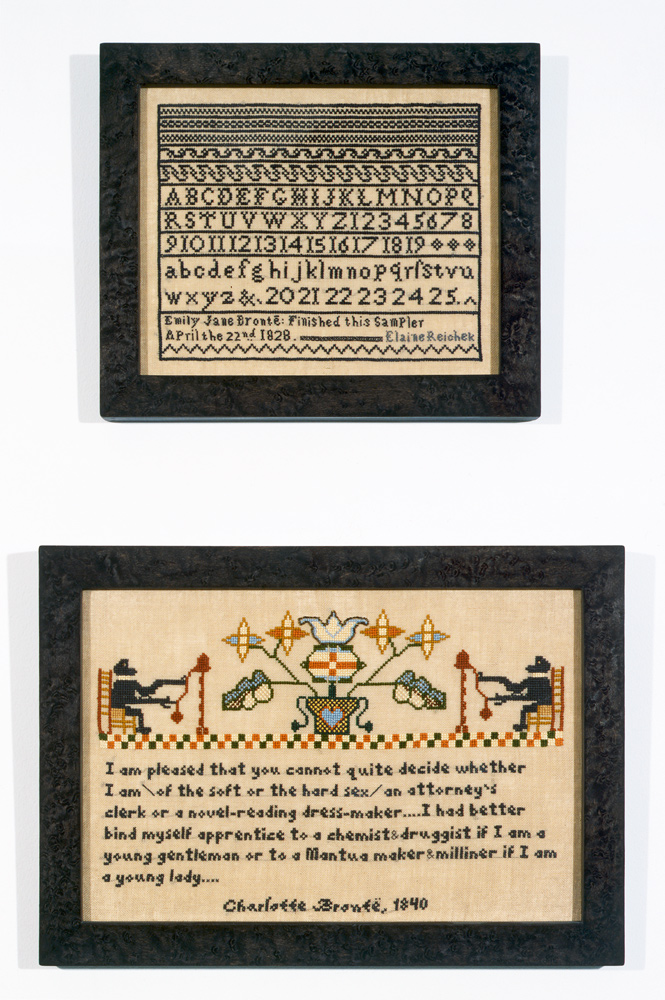 ABCDEFGHIJKLMNOPQ
RSTUVWXYZ12345678
910111213141516171819
abcdefghijklmnopqrſstvu
wxyz&. 20 21 22 23 24 25.
Emily Jane Brontë: Finished this Sampler
April the 22nd 1828. Elaine Reichek
I am pleased that you cannot quite decide whether
I am\of the soft or the hard sex/an attorney's
clerk or a novel-reading dress-maker....I had better
bind myself apprentice to a chemist&druggist if I am a
young gentleman or to a Mantua maker&milliner if I am
a young lady....
Charlotte Brontë, 1840